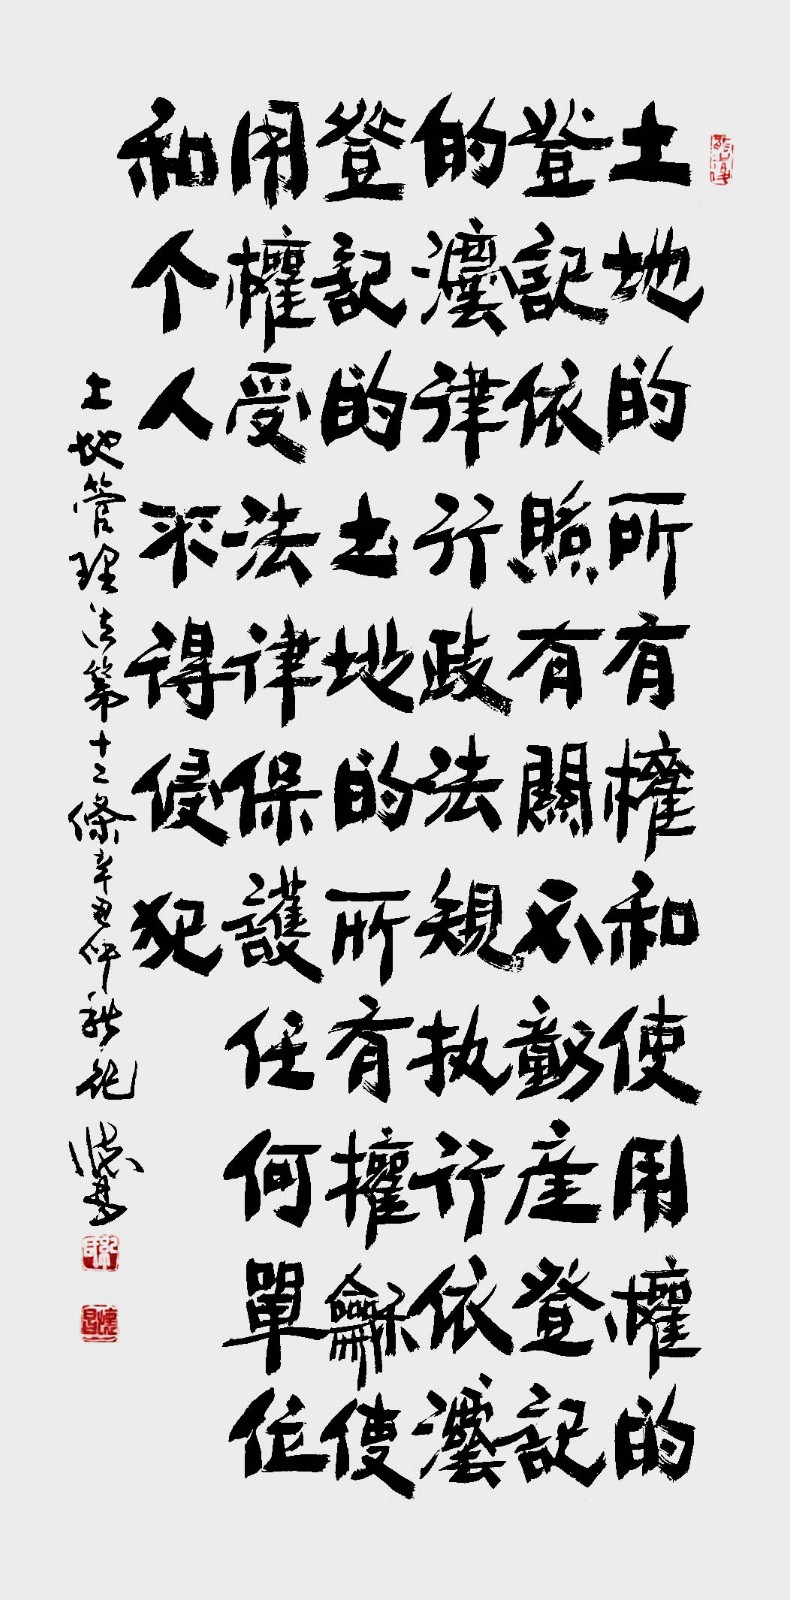 土地的所有權和使用權的
登記依照有關不動産登記
的灋律行政法規执行依灋
登記的土地的所有權龢使
用權受法律保護任何單位
和个人不得侵犯
土地管理法第十二條辛丑仲秋紀懷昌